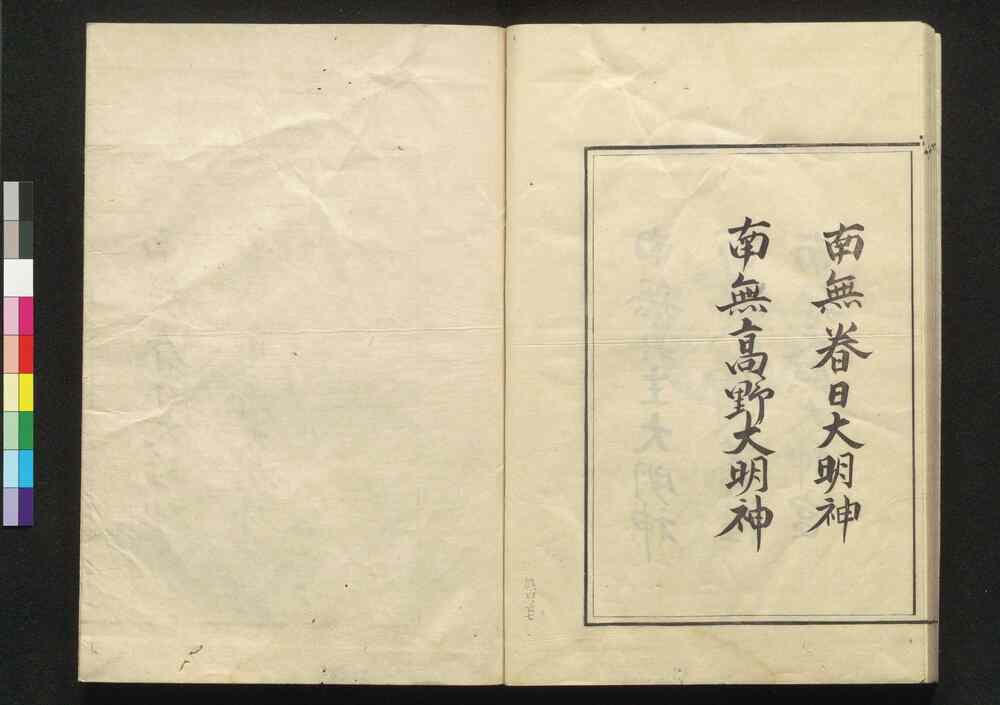 南無春日大明神
南無高野大明神